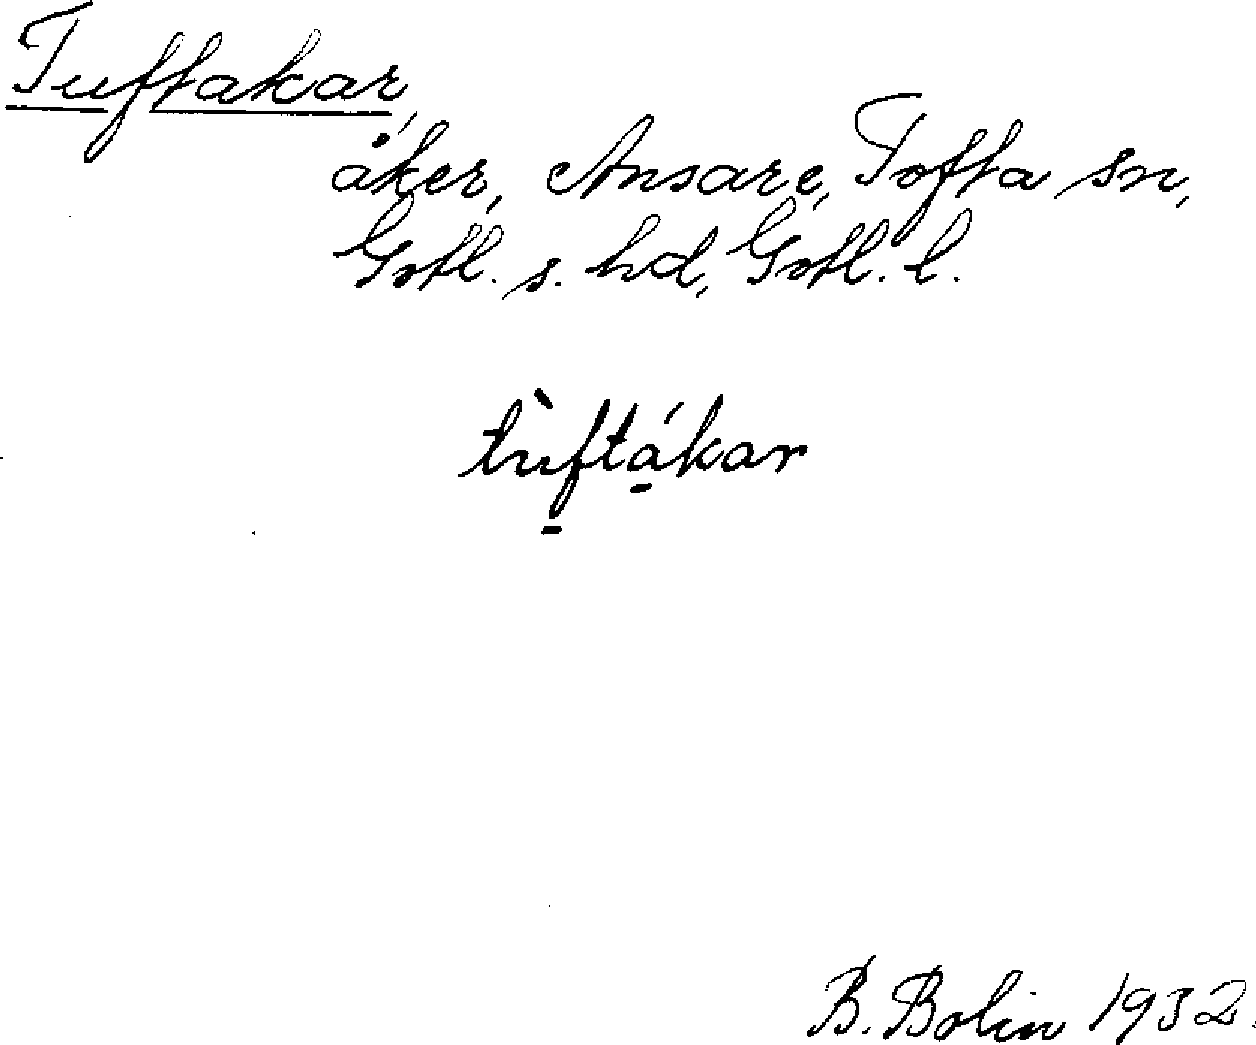 Tuftakar,
åker, Ansarve, Tofta sn,
Gotl. s. hd, Gotl. l.
tùf̱tá̱kar
B. Bolin 1932.